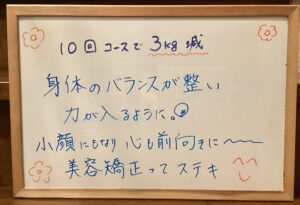 10回 コースで 3kg 減
身体のバランスが整い
力が入るように。
小顔にもなり 心も前向きに〜〜
美容矯正って ステキ